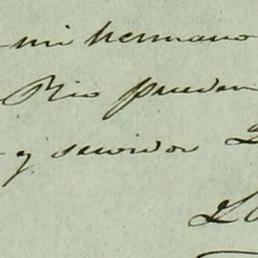 mi hermano
Rio puedan
y servidor